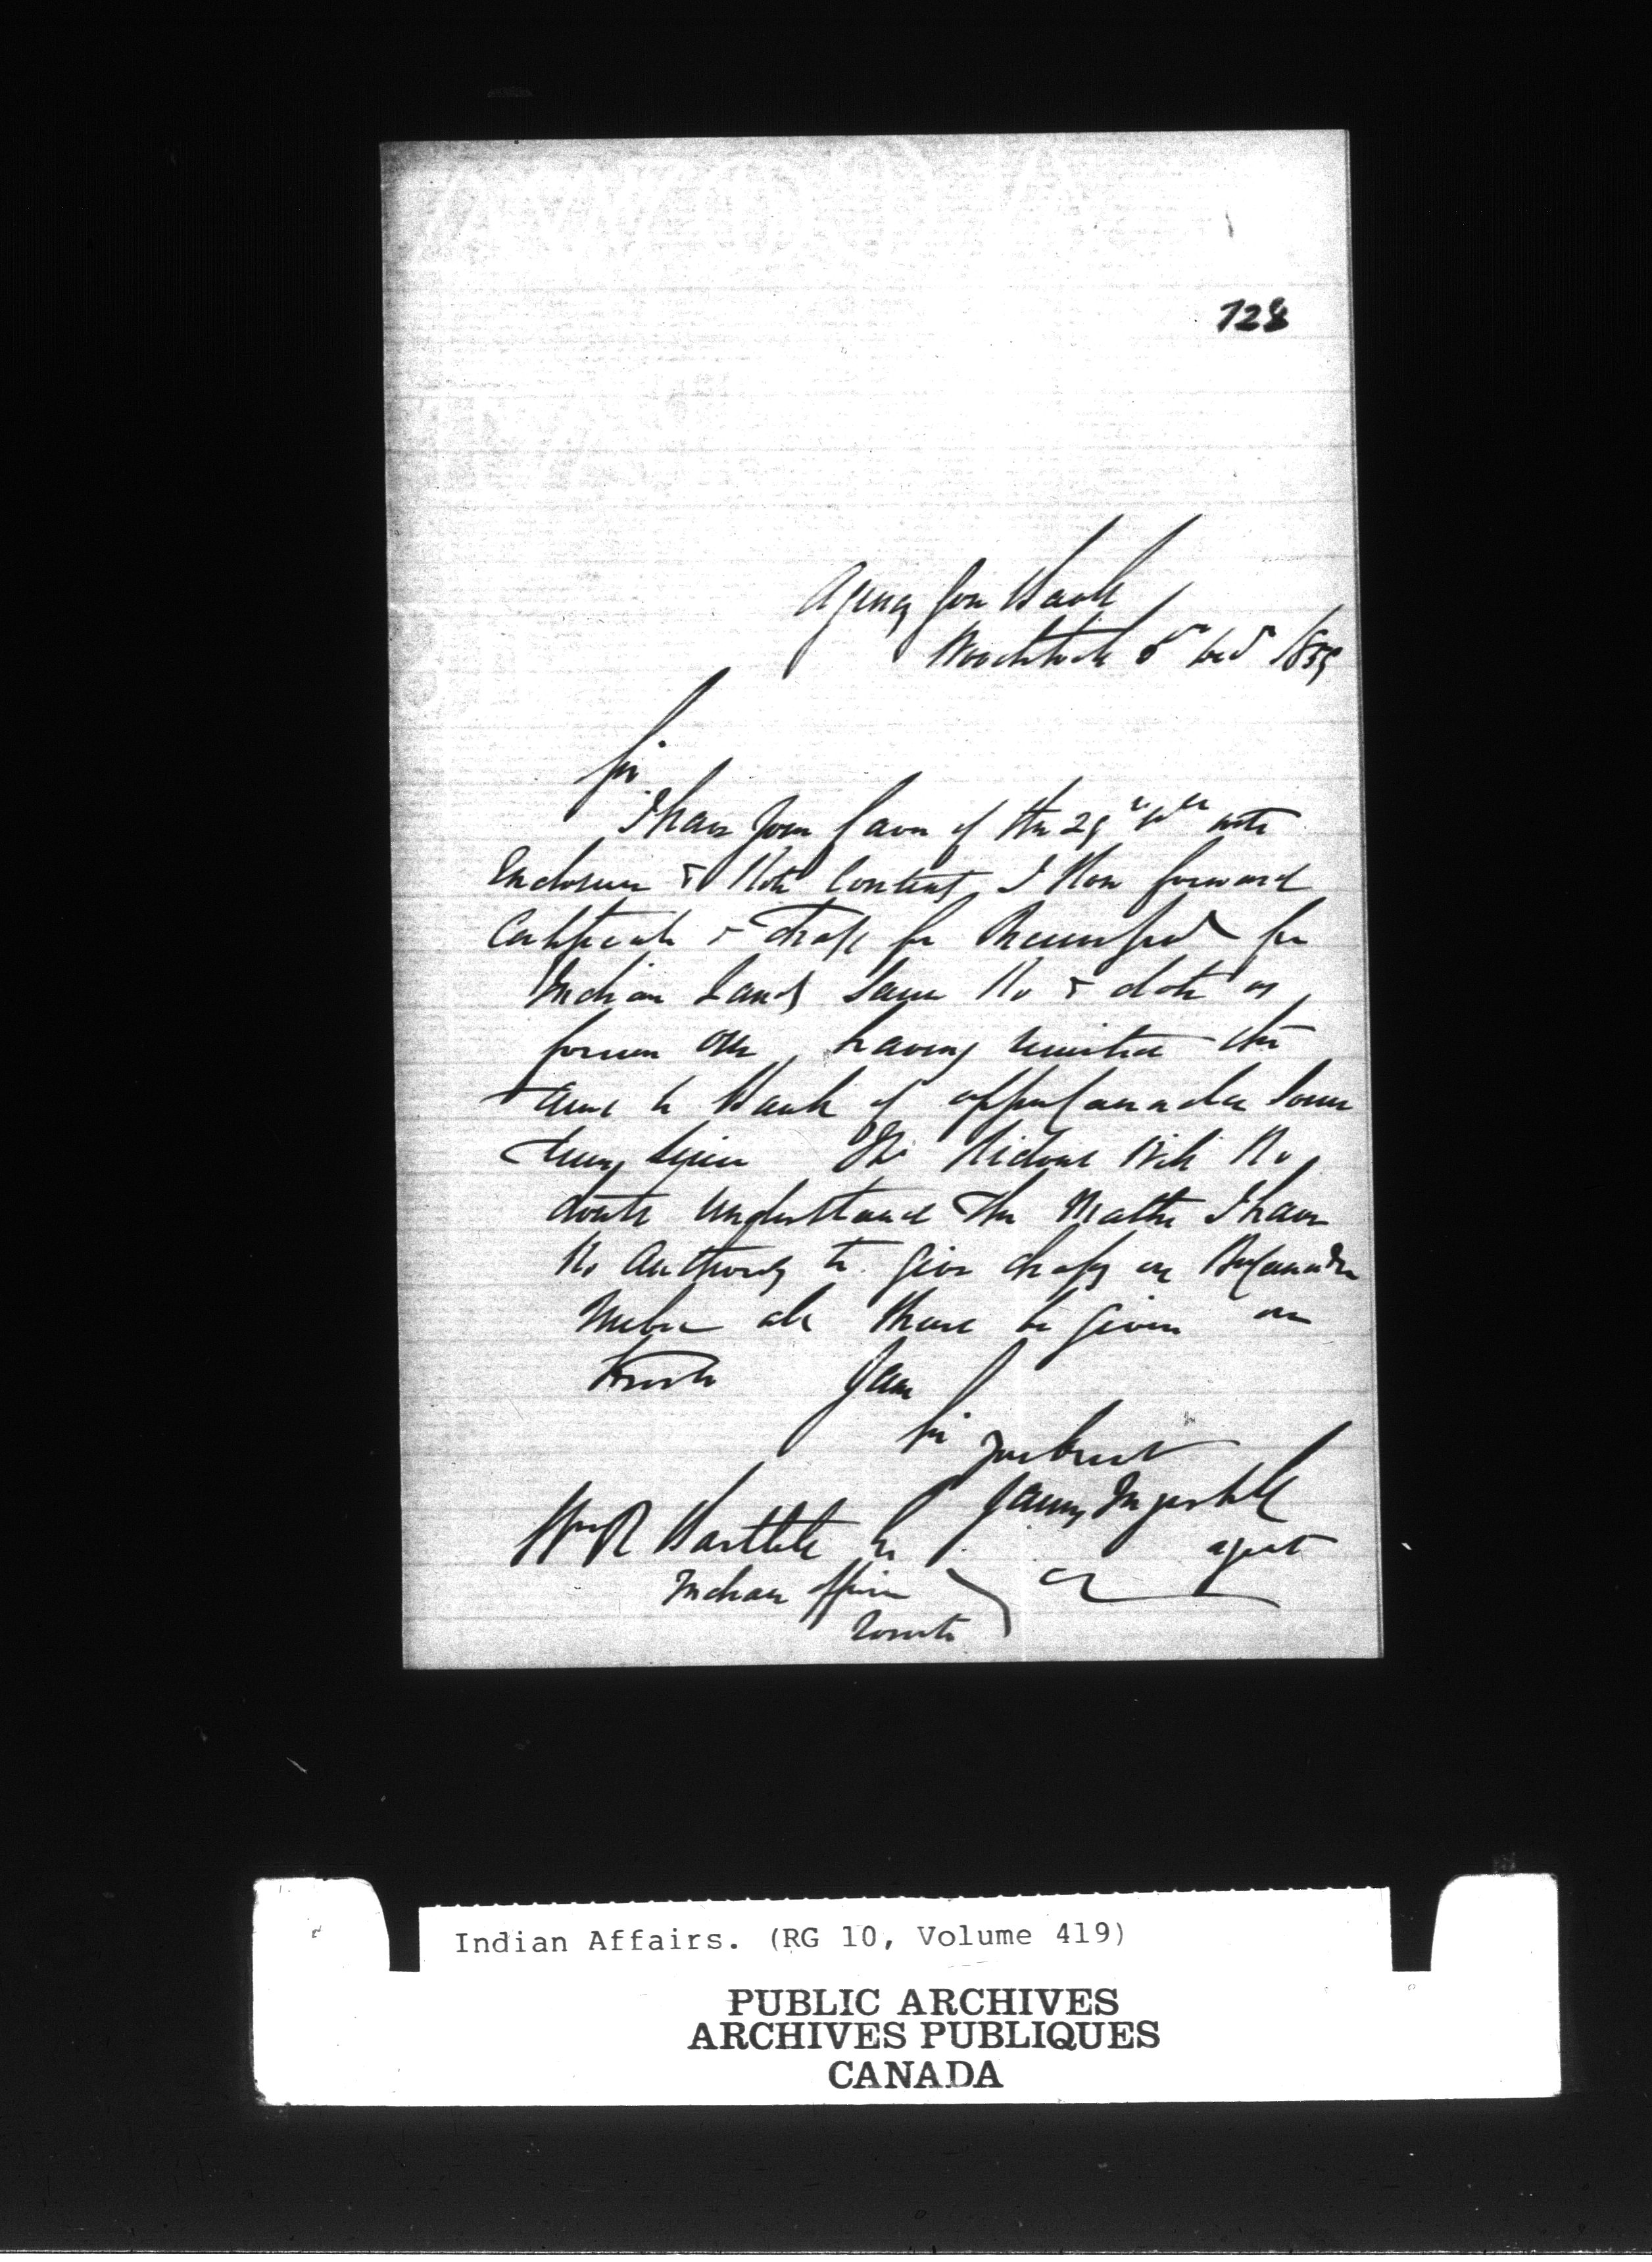 728
Agency Gore Bank
Woodstock 8th 1859
Sir
I have your favor of the 29th with
Enclosure & Note Contents, I Now forward
Certificate & draft for for
Indian Lands Same No & date as
former one, having remitted the
same to Bank of Upper Canada Some
time since Mr Ridout Will No
doubt understand the Matter I have
No Authority to give drafts on
all these be given on
Toronto I am
Sir your obedt
James Ingersoll
Wm R Bartlett
agent
Indian Office
Toronto
Indian Affairs. (RG 10, Volume 419)
PUBLIC ARCHIVES
ARCHIVES PUBLIQUES
CANADA